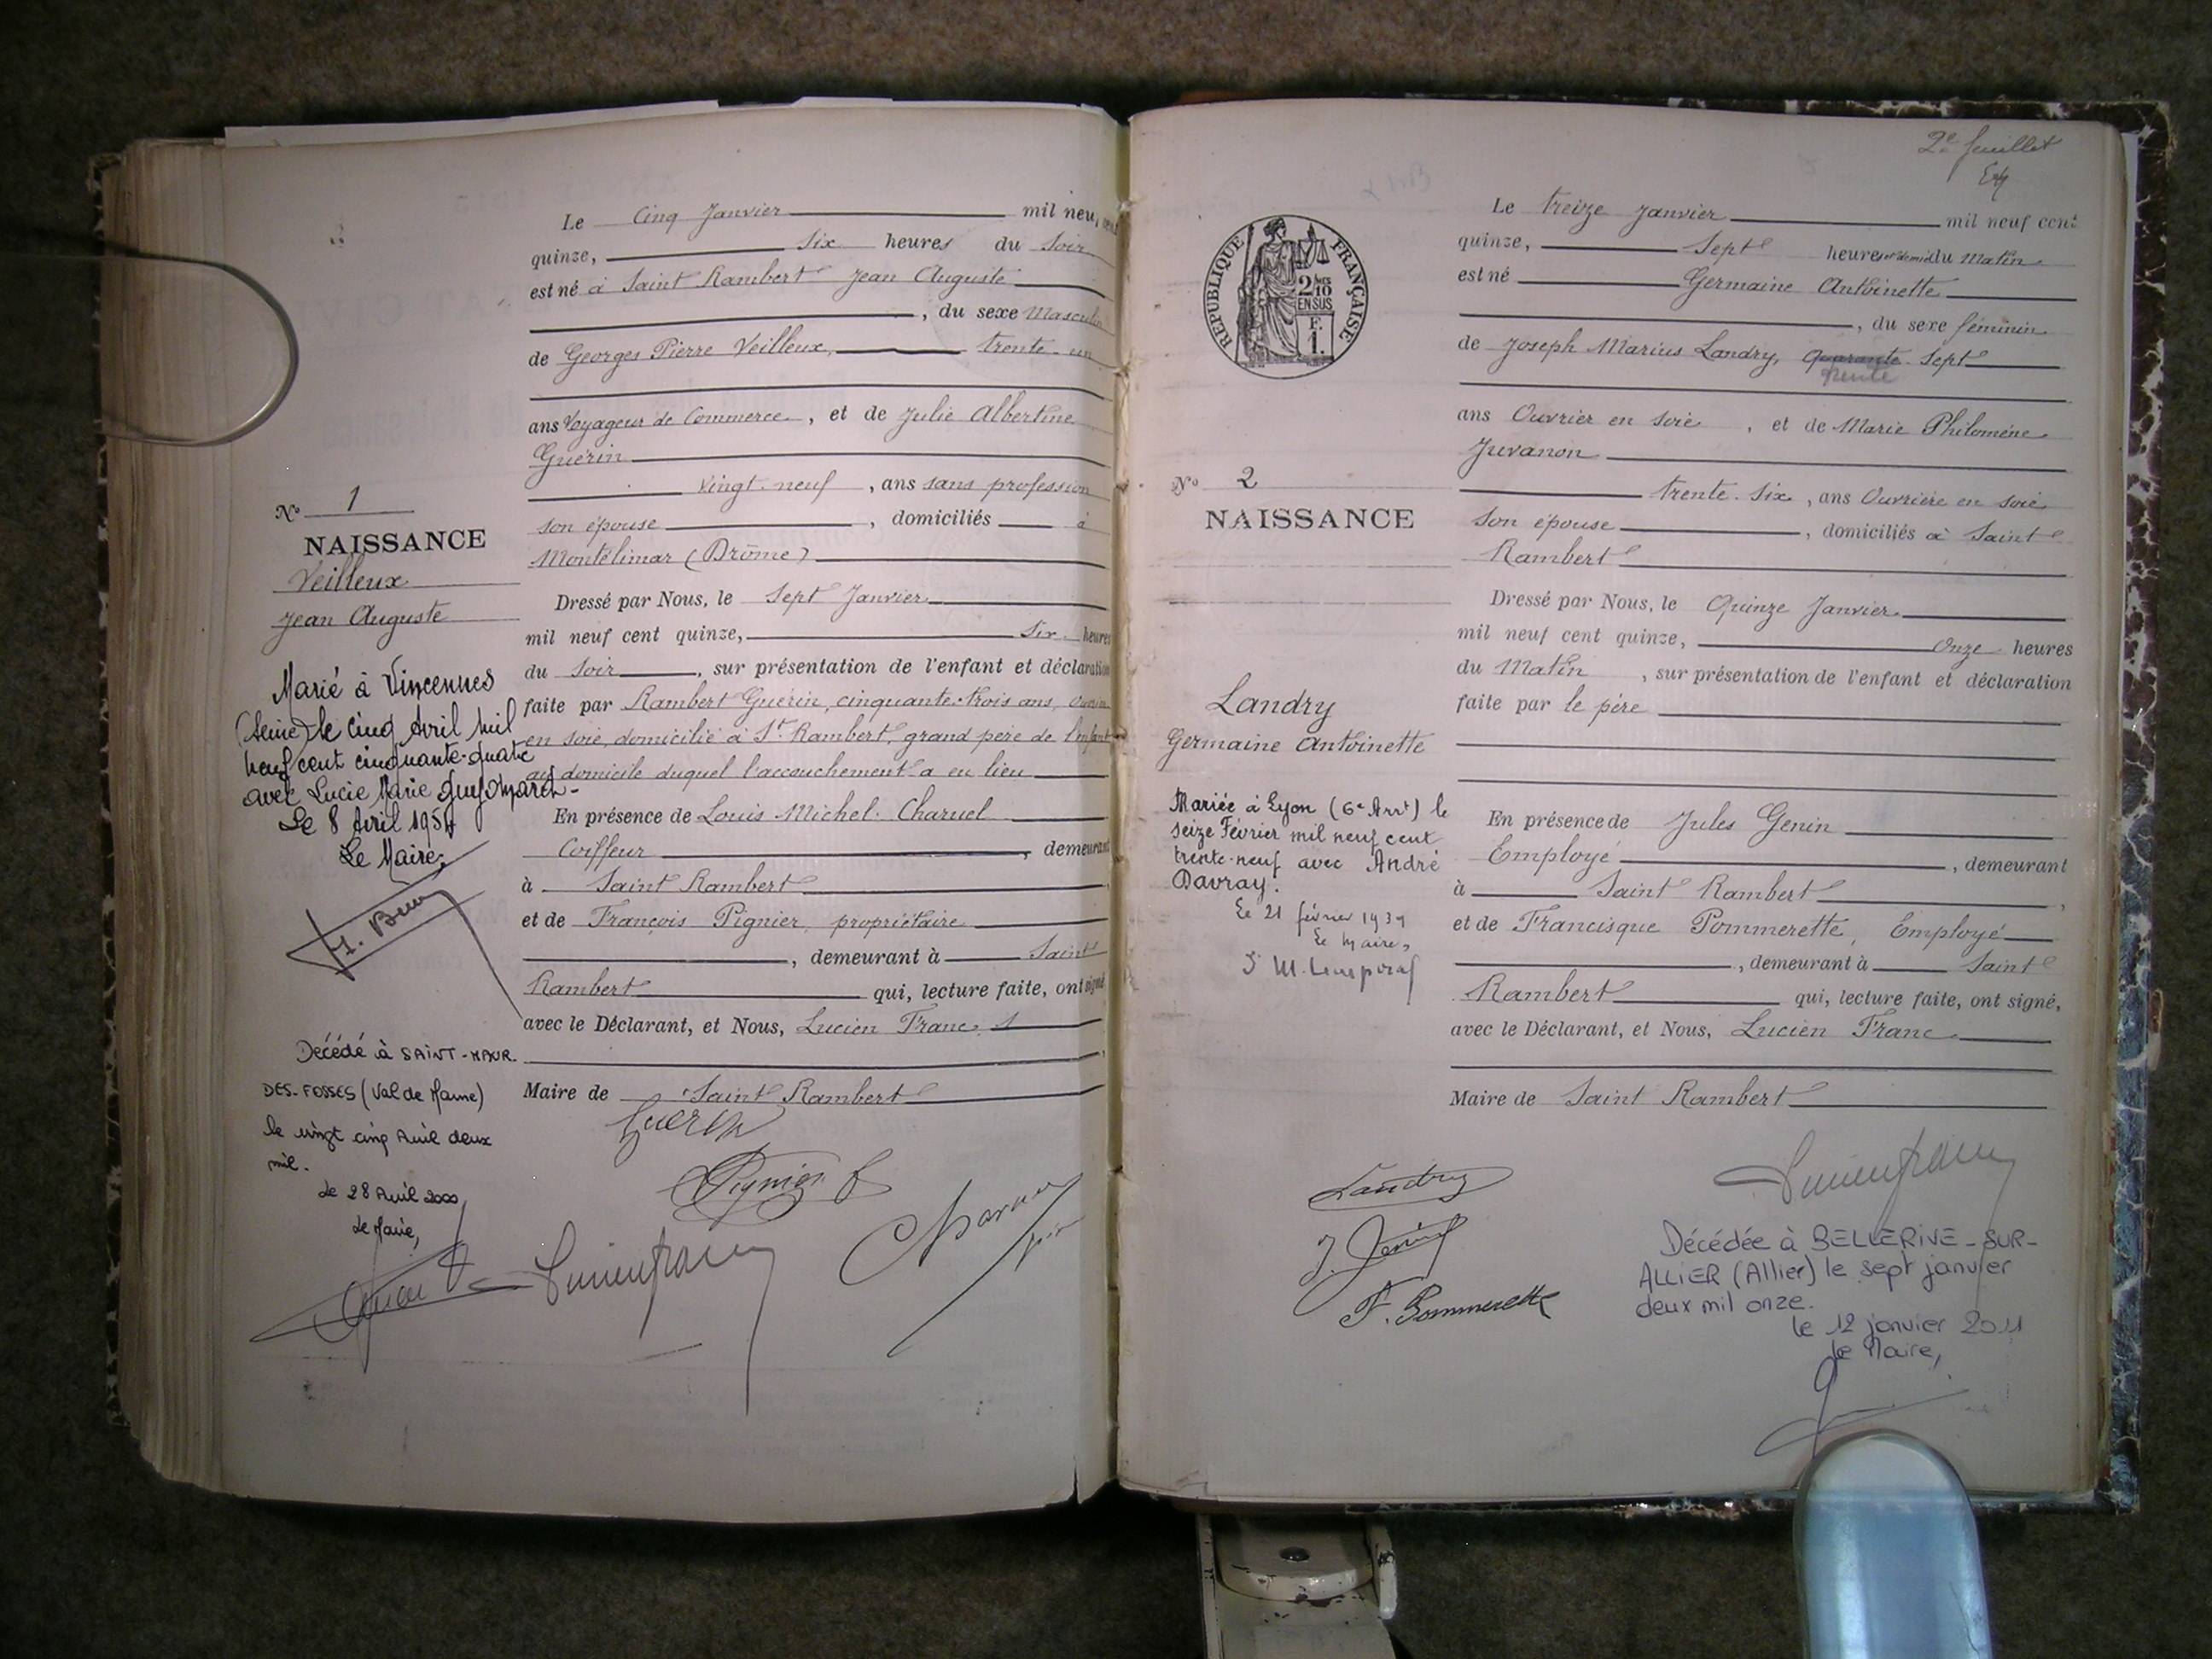 Le Cinq Janvier mil neuf cent
quinze, Six heures du Soir
est né à Saint Rambert Jean Auguste
, du sexe Masculin
de Georges Pierre Veilleux, trente-un
ans Voyageur de Commerce, et de Julie Albertine
Guérin
Vingt-neuf, ans sans profession
son épouse, domiciliés à
Montélimar (Drôme)
N° 1
NAISSANCE
Veilleux
Jean Auguste
Dressé par Nous, le Sept Janvier
mil neuf cent quinze, Six heures
du Soir, sur présentation de l'enfant et déclaration
faite par Rambert Guérin, cinquante-trois ans, ouvrier
en soie, domicilié à St Rambert, grand père de l'enfant
au domicile duquel l'accouchement a eu lieu
En présence de Louis Michel Charuel
Coiffeur, demeurant
à Saint Rambert
et de François Pignier, propriétaire
, demeurant à Saint
Rambert qui, lecture faite, ont signé
avec le Déclarant, et Nous, Lucien Franc
Maire de Saint Rambert
Marié à Vincennes
(Seine) le cinq Avril mil
neuf cent cinquante-quatre
avec Lucie Marie Guyomarch-
Le 8 Avril 1954
Le Maire,
Décédé à SAINT-MAUR-
DES-FOSSES (Val de Marne)
le vingt cinq Avril deux
mil.
Le 28 Avril 2000
Le Maire,
Guérin
Pignier F
Lucien Franc
2e feuillet
REPUBLIQUE FRANÇAISE
2/10
EN SUS
F.
1.
Le treize Janvier mil neuf cent
quinze, Sept heures et demie du Matin
est né Germaine Antoinette
, du sexe féminin
de Joseph Marius Landry, Quarante-Sept
trente
ans Ouvrier en soie, et de Marie Philomène
Juvanon
trente-six, ans Ouvrière en soie
son épouse, domiciliés à Saint
Rambert
N° 2
NAISSANCE
Landry
Germaine Antoinette
Dressé par Nous, le Quinze Janvier
mil neuf cent quinze, Onze heures
du Matin, sur présentation de l'enfant et déclaration
faite par le père
En présence de Jules Genin
Employé, demeurant
à Saint Rambert,
et de Francisque Pommerette, Employé
, demeurant à Saint
Rambert qui, lecture faite, ont signé,
avec le Déclarant, et Nous, Lucien Franc
Maire de Saint Rambert
Mariée à Lyon (6e Arrt) le
seize Février mil neuf cent
trente-neuf avec André
Davray.
Le 21 février 1939
Le Maire,
Landry
J. Genin
F. Pommerette
Lucien Franc
Décédée à BELLERIVE-SUR-
ALLIER (Allier) le sept janvier
deux mil onze.
le 12 janvier 2011
le Maire,